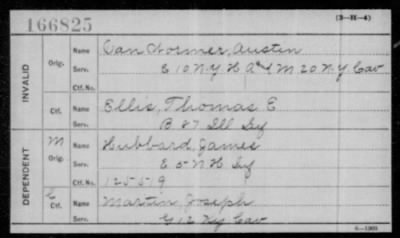 166825
(3-H-4)
INVALID
Orig.
Name Van Wormer, Austin
Serv. E 10 N.Y H A & M 20 N.Y Cav
Ctf. No.
Ctf.
Name Ellis, Thomas E
Serv. B 87 Ill Inf
DEPENDENT
M
Orig.
Name Hubbard, James
Serv. E 5 N H Inf
Ctf. No. 125519
C
Ctf.
Name Martin Joseph
Serv. G 12 Ky Cav